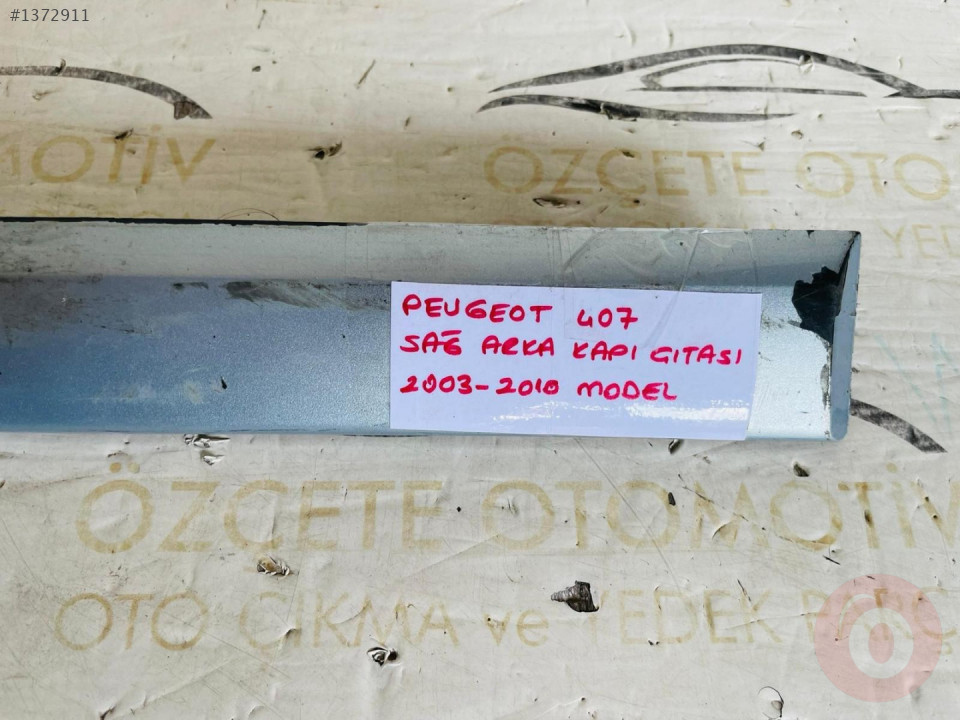 #1372911
OMOTİV
ÖZÇETE OTO
YED
PEUGEOT 407
SAĞ ARKA KAPI GITASI
2003-2010 MODEL
ÖZÇETE OTOMOTİV
OTO ÇIKMA ve YEDEK PARÇ